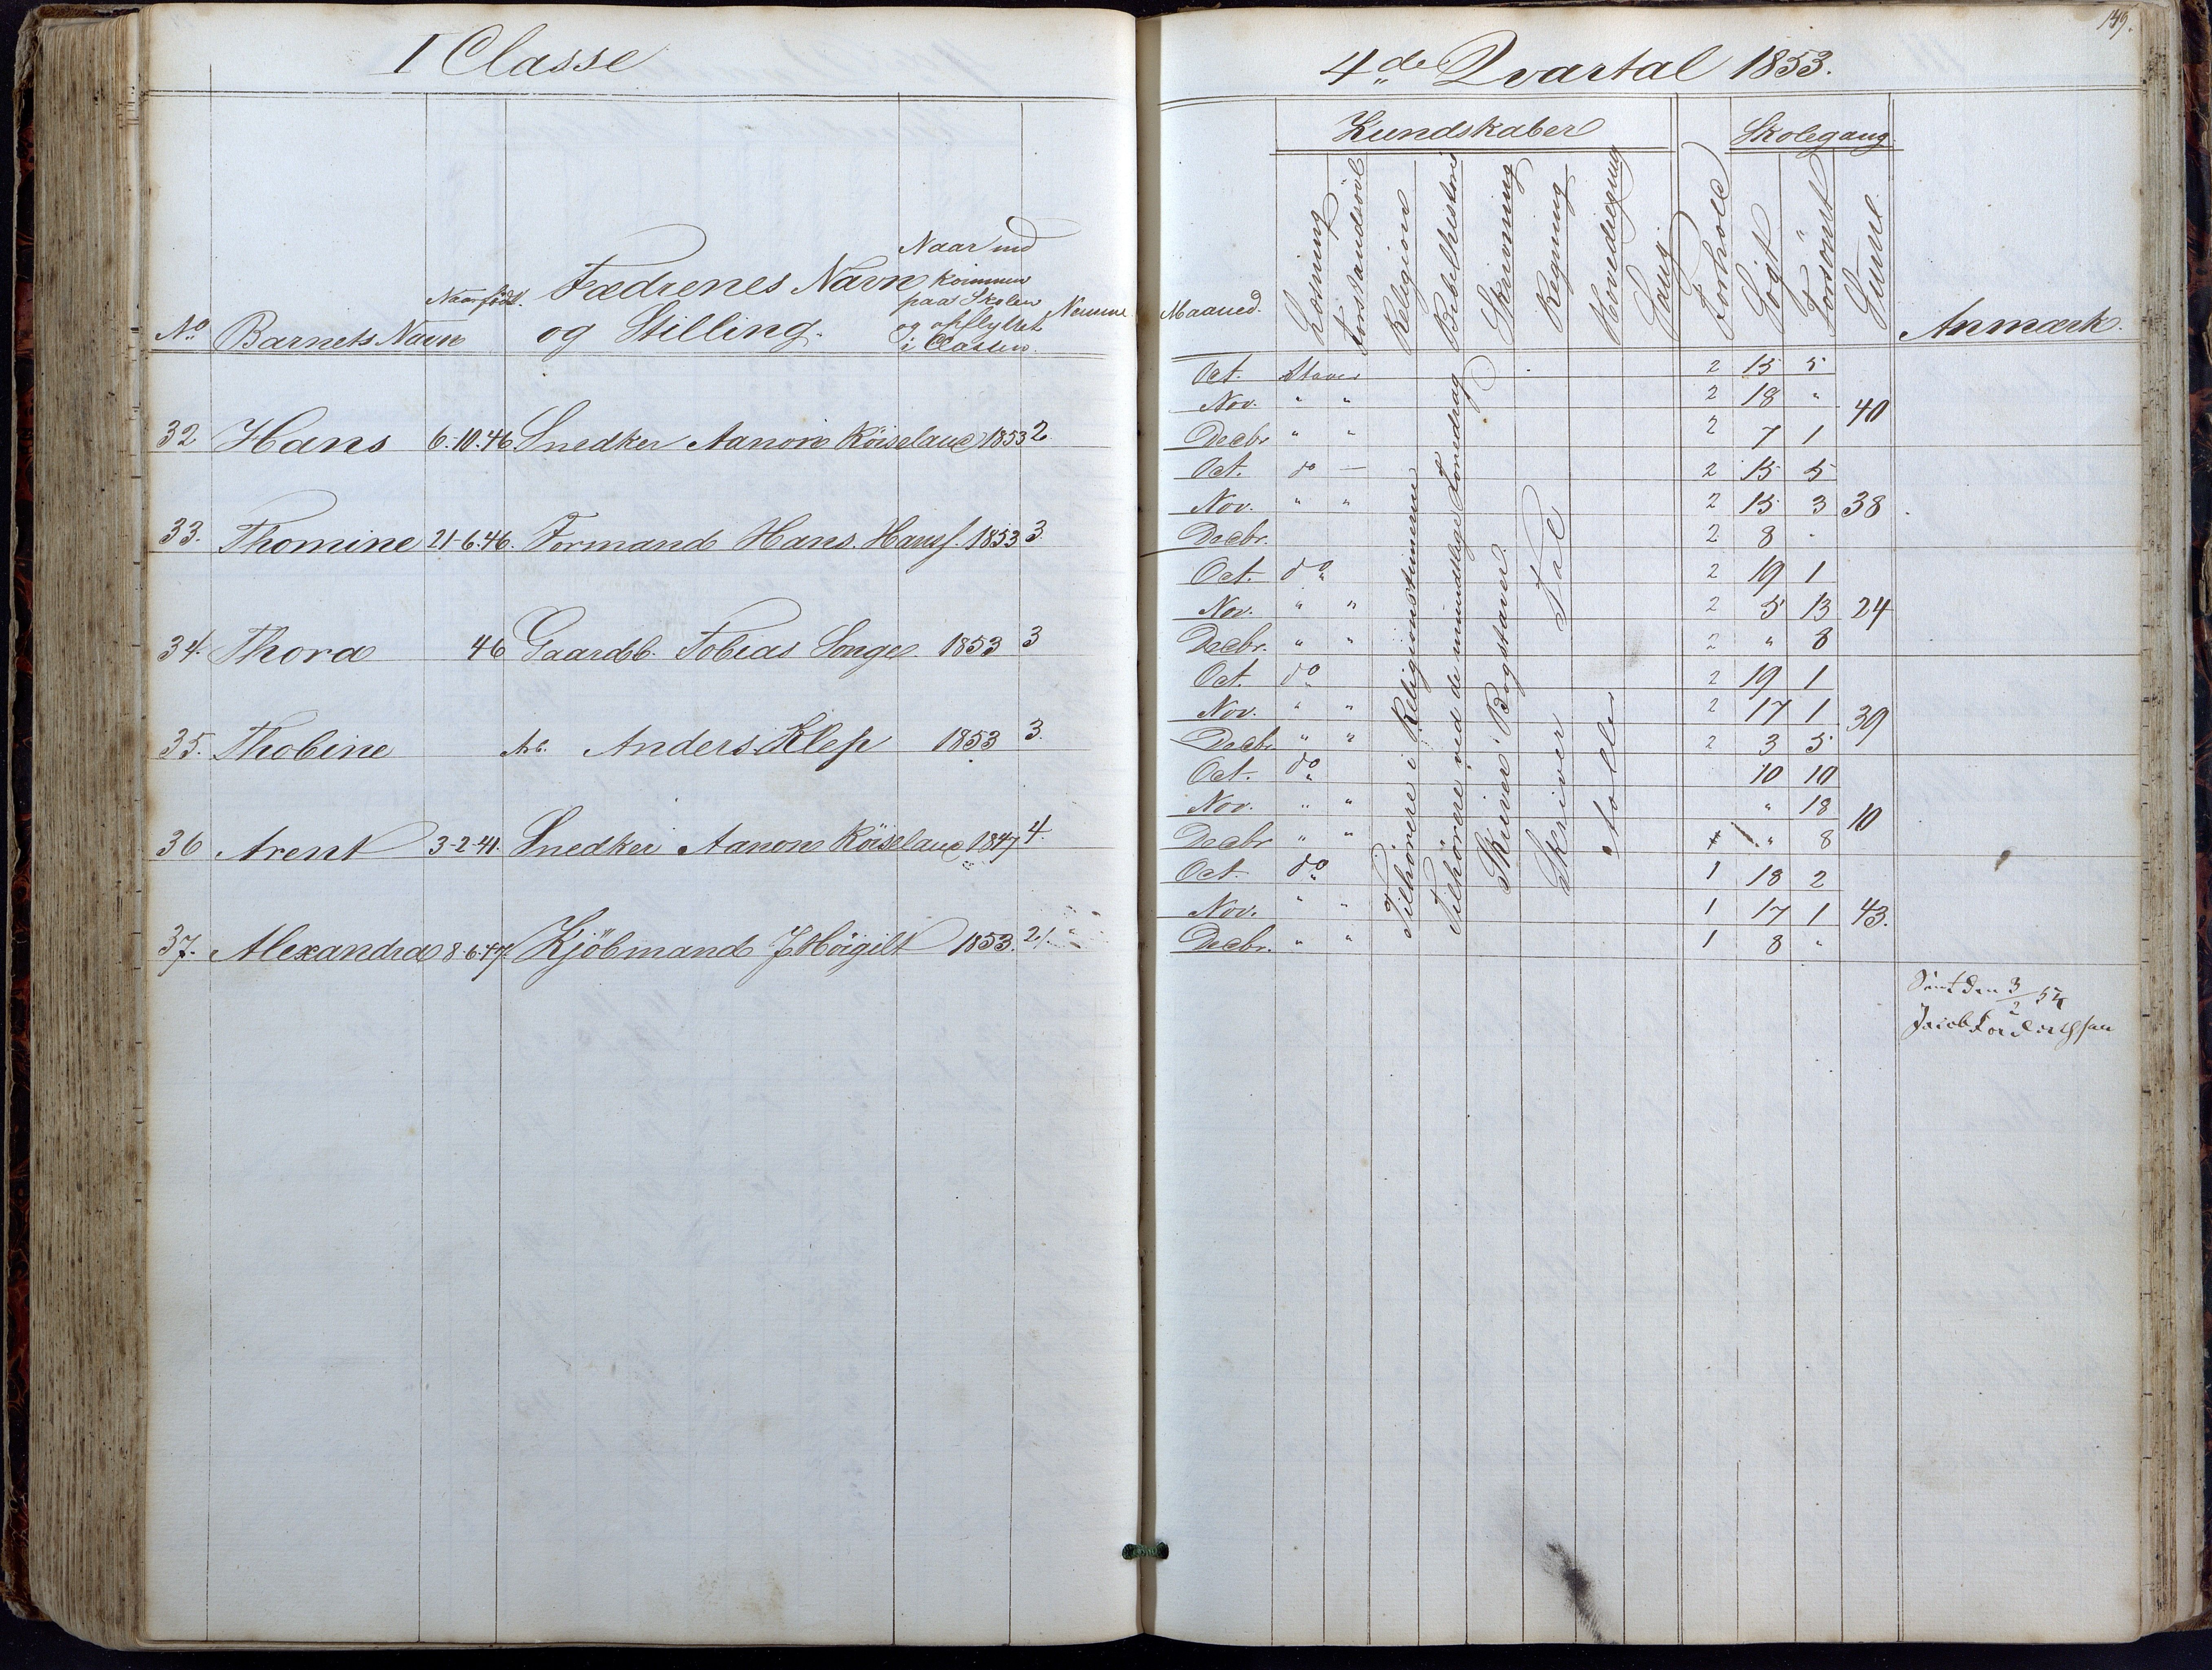 I Classe
No
Barnets Navn
Naar født.
Fædrenes Navn
og Stilling.
Naar ind
kommen
paa Skolen
og opflyttet
i Classen.
Numme
32 Hans 6-10.46 Snedker Aanon 1853 2
33. Thomine 21-6.46. Formand Hans. Hansf. 1853 3
34. Thora 46 Gaardb. Tobias Songe 1853 3
35. Thobine Arb. Anders Klep 1853 3.
36 Arent 3-2-41. Snedker Aanon 1847 4.
37. Alexandra 8-6.47 Kjöbmand 1853. 21.
149.
4de Qvartal 1853.
Kundskaber
Skolegang
Maaned.
Læsning
Forstandsövl
Religion
Bibelhistorie
Skrivning
Regning
Hovedregning
Sang
Forhold
Sögt
Forsömt
Sum.
Anmærk.
Oct. Staver 2 15 5
Nov. " " 2 18 " 40
Decbr " " 2 7 1
Oct. do — 2 15 5
Nov. " " 2 15 3 38
Decbr. 2 8 "
Oct. do 2 19 1
Nov. " " 2 5 13 24
Decbr. " " 2 " 8
Oct. do 2 19 1
Nov. " " 2 17 1 39
Decbr. " " 2 3 5
Oct. do 10 10
Nov. " " " 18 10
Decbr " " " 8
Oct. do 1 18 2
Nov. " " 1 17 1 43.
Decbr. " " 1 8 "
Tilhörere i Religionstimerne
Tilhörere ved de mundtlige Foredrag
Skriver Bogstaver.
Skriver Tal
Seet den 3/2 54